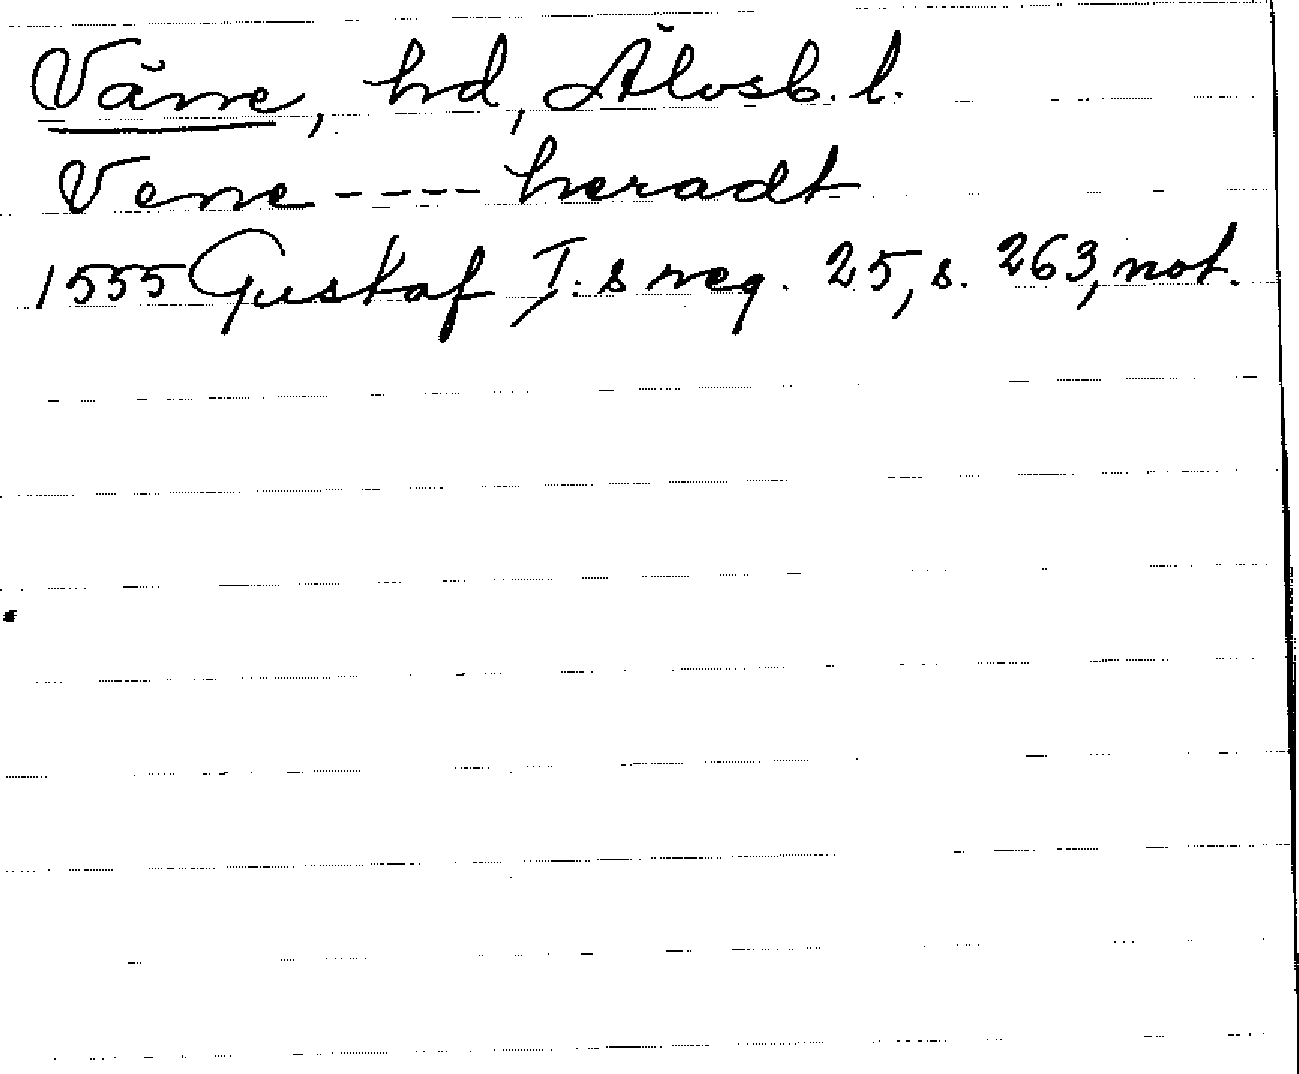 Väne, hd, Älvsb. l.
Vene ---- heradt
1555 Gustaf I:s reg. 25, s. 263, not.